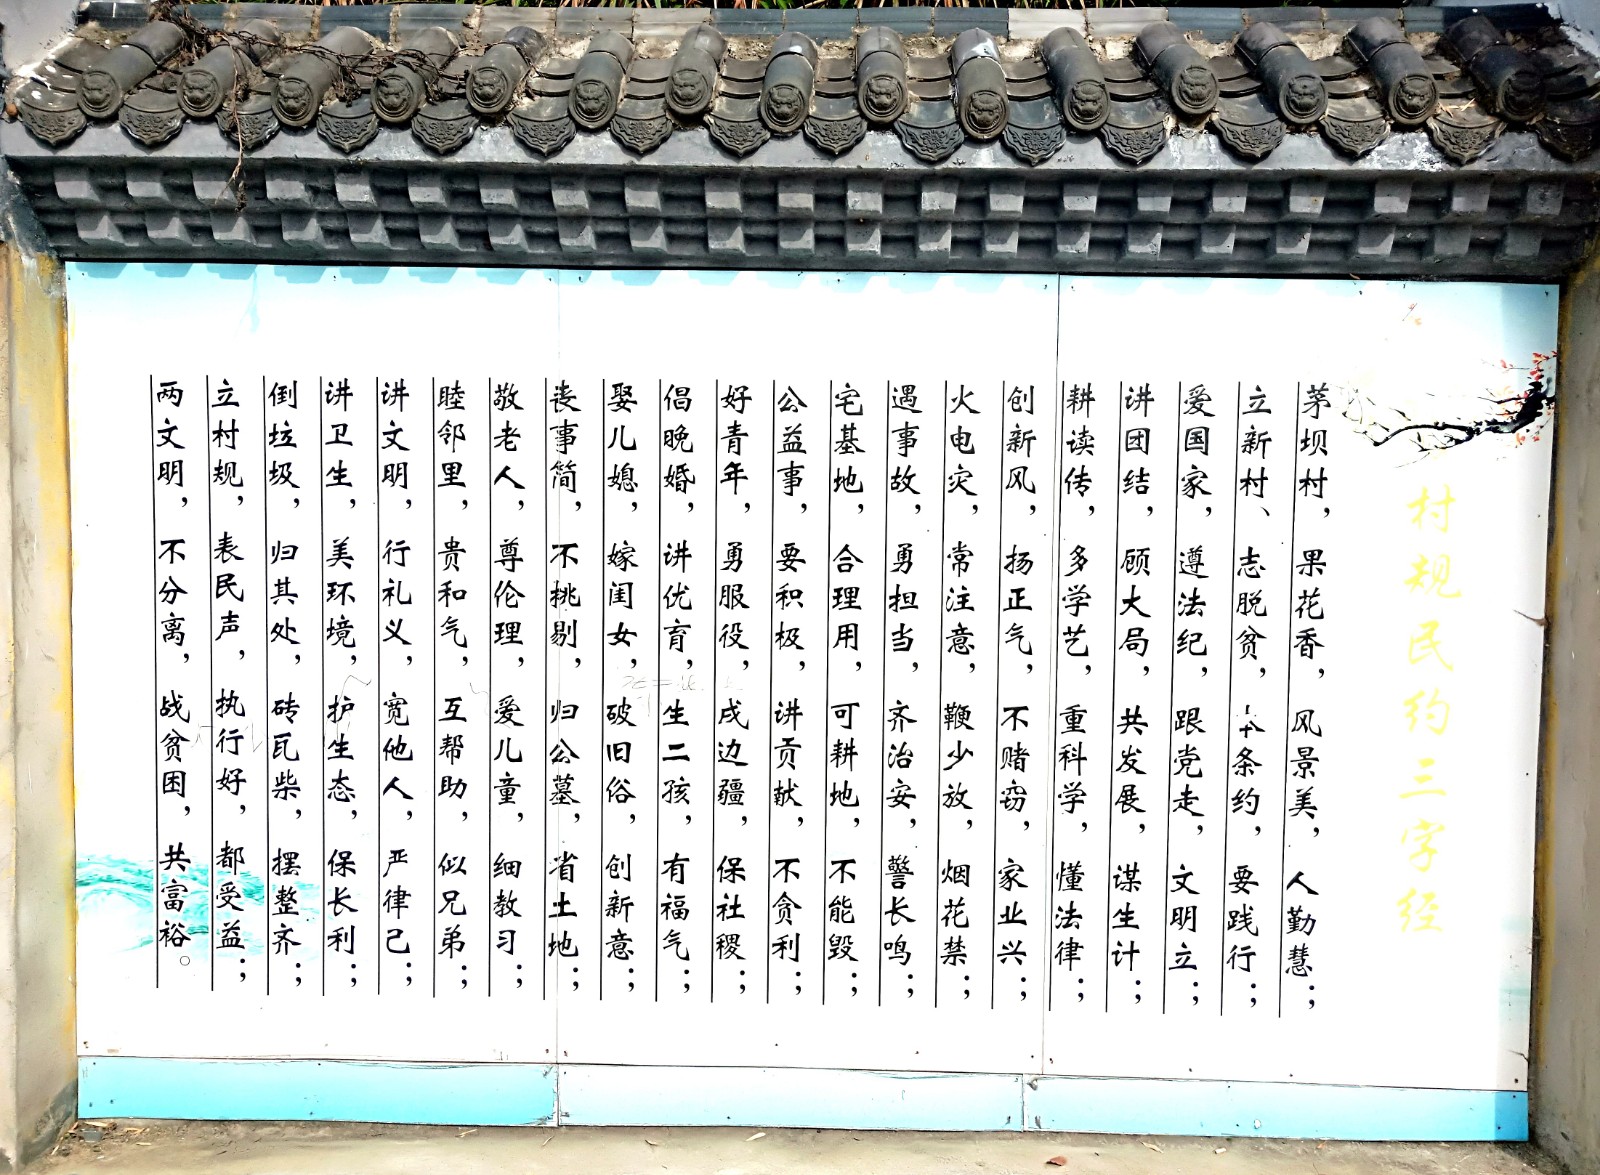 村规民约三字经
茅坝村，果花香，风景美，人勤慧；
立新村、志脱贫，条约，要践行；
爱国家，遵法纪，跟党走，文明立；
讲团结，顾大局，共发展，谋生计；
耕读传，多学艺，重科学，懂法律；
创新风，扬正气，不赌窃，家业兴；
火电灾，常注意，鞭少放，烟花禁；
遇事故，勇担当，齐治安，警长鸣；
宅基地，合理用，可耕地，不能毁；
公益事，要积极，讲贡献，不贪利；
好青年，勇服役，戍边疆，保社稷；
倡晚婚，讲优育，生二孩，有福气；
娶儿媳，嫁闺女，破旧俗，创新意；
丧事简，不挑剔，归公墓，省土地；
敬老人，尊伦理，爱儿童，细教习；
睦邻里，贵和气，互帮助，似兄弟；
讲文明，行礼义，宽他人，严律己；
讲卫生，美环境，护生态，保长利；
倒垃圾，归其处，砖瓦柴，摆整齐；
立村规，表民声，执行好，都受益；
两文明，不分离，战贫困，共富裕。